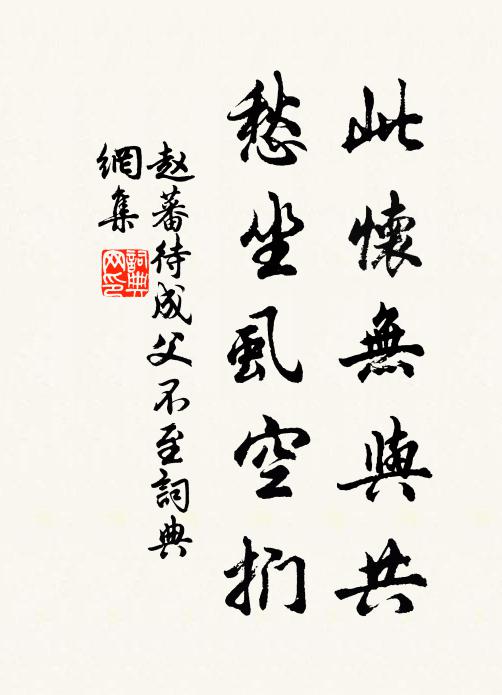 此懷無與共
愁坐虱空捫
赵蕃待成父不至詞典
網集
詞典
网印